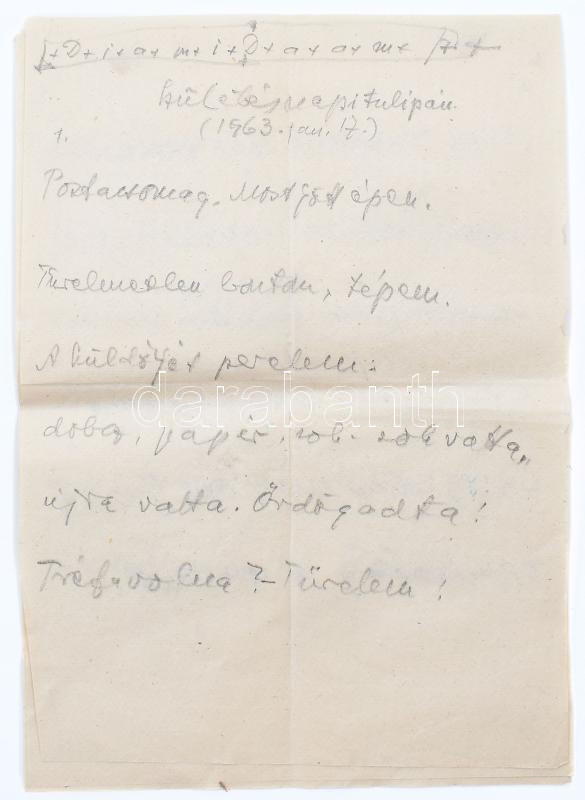 születésnapi tulipán.
(1963. jan. 17.)
1.
Postacsomag. Most jött épen.
Türelmetlen bontom, tépem.
A küldőjét perelem:
doboz, papír, sok- sok vatta,,
újra vatta. Ördögadta!
Tréf volna? - Türelem!
darabanth